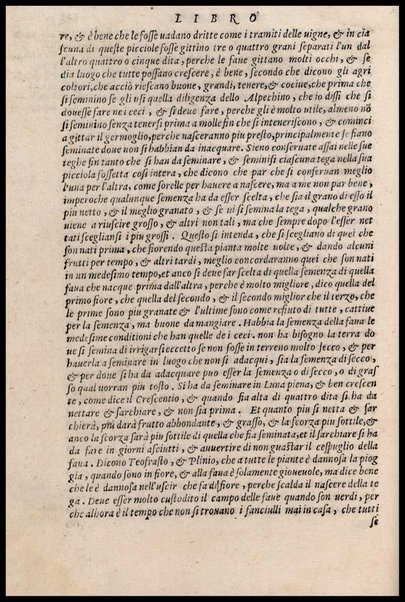 LIBRO
re, & è bene che le fosse uadano dritte come i tramiti delle uigne, & in cia
scuna di queste picciole fosse gittino tre o quattro grani separati l'un dal
l'altro quattro o cinque dita, perche le faue gittano molti occhi, & se
dia luogo che tutte possano crescere, è bene, secondo che dicono gli agri
coltori, che acciò riescano buone, grandi, tenere, & cociue, che prima che
si seminino se gli usi quella diligenza dello Alpechino, che io dissi che si
douesse fare nei ceci, & si deue fare, perche gli è molto utile, almeno no
si seminino senza tenersi prima a molle fin che si inteneriscono, & cominci
a gittar il germoglio, perche nasceranno piu presto, principalmente se siano
seminate doue non si habbian da inacquare. Sieno conseruate assai nelle sue
teghe fin tanto che si han da seminare, & seminisi ciascuna tega nella sua
picciola fossetta così intera, che dicono che par che si conseruan meglio
l'una per l'altra, come sorelle per hauere a nascere, ma a me non par bene,
imperoche qualunque semenza ha da esser scelta, che sia il grano di esso il
piu netto, & il meglio granato, & se ui si semina la tega, qualche grano
uiene a riuscire grosso, & altri non tali, ma che sempre dopo l'esser net
tati scegliansi i piu grossi. Questo si intenda, che si scegliano di quei che
son nati prima, che fiorendo questa pianta molte uolte, & dando alcuni
frutti per tempo, & altri tardi, meglio concordaranno quei che son nati
in un medesimo tempo, et anco si deue far scelta di quella semenza di quella
faua che nacque prima dall'altra, perche è molto migliore, dico quella del
primo fiore, che quella del secondo, & il secondo miglior che il terzo, che
le prime sono piu granate & l'ultime sono come refiuto di tutte, cattiue
per la semenza, ma buone da mangiare. Habbia la semenza della faua le
medesime conditioni che han quelle de i ceci. non ha bisogno la terra do
ue si semina di irrigarsi eccetto se non fosse in terreno molto secco, & per
hauerla a seminare in luogo che non si adacqui, sia la semenza di secco,
& per doue si ha da adacquare puo esser la semenza o di secco, o di gras
so qual uorran piu tosto. Si ha da seminare in Luna piena, & ben crescen
te, come dice il Crescentio, & quando sia alta di quattro dita si ha da
nettare & sarchiare, & non sia prima. Et quanto piu si netta & sar
chierà, piu darà frutto abbondante, & grasso, & la scorza piu sottile, &
anco la scorza sarà piu sottile di quella che fia seminata, et il sarchiare si ha
da fare in giorni asciutti, & auuertire di non guastar il cespuglio della
faua. Dicono Teofrasto, & Plinio, che a tutte le piante è dannosa la piog
gia, quando sono in fiore, & alla faua è solamente gioueuole, ma dice bene
che le è dannosa nell'uscir che fa di fiore, perche scalda il nascere della te
ga. Deue esser molto custodito il campo delle faue quando son uerdi, per
che alhora è il tempo che non si trouano i fanciulli mai in casa, che tutti
se